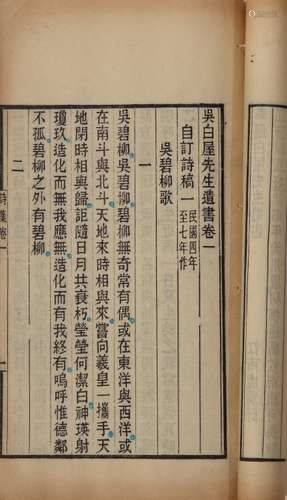 吳白屋先生遺書卷一
自訂詩稿一 民國四年至七年作
吳碧柳歌
一
吳碧柳吳碧柳碧柳無奇常有偶或在東洋與西洋或
在南斗與北斗天地來時相與來嘗向羲皇一攜手天
地閉時相與歸詎隨日月共衰朽瑩瑩何潔白神瑛射
瓊玖造化而無我應無造化而有我終有嗚呼惟德鄰
不孤碧柳之外有碧柳
二